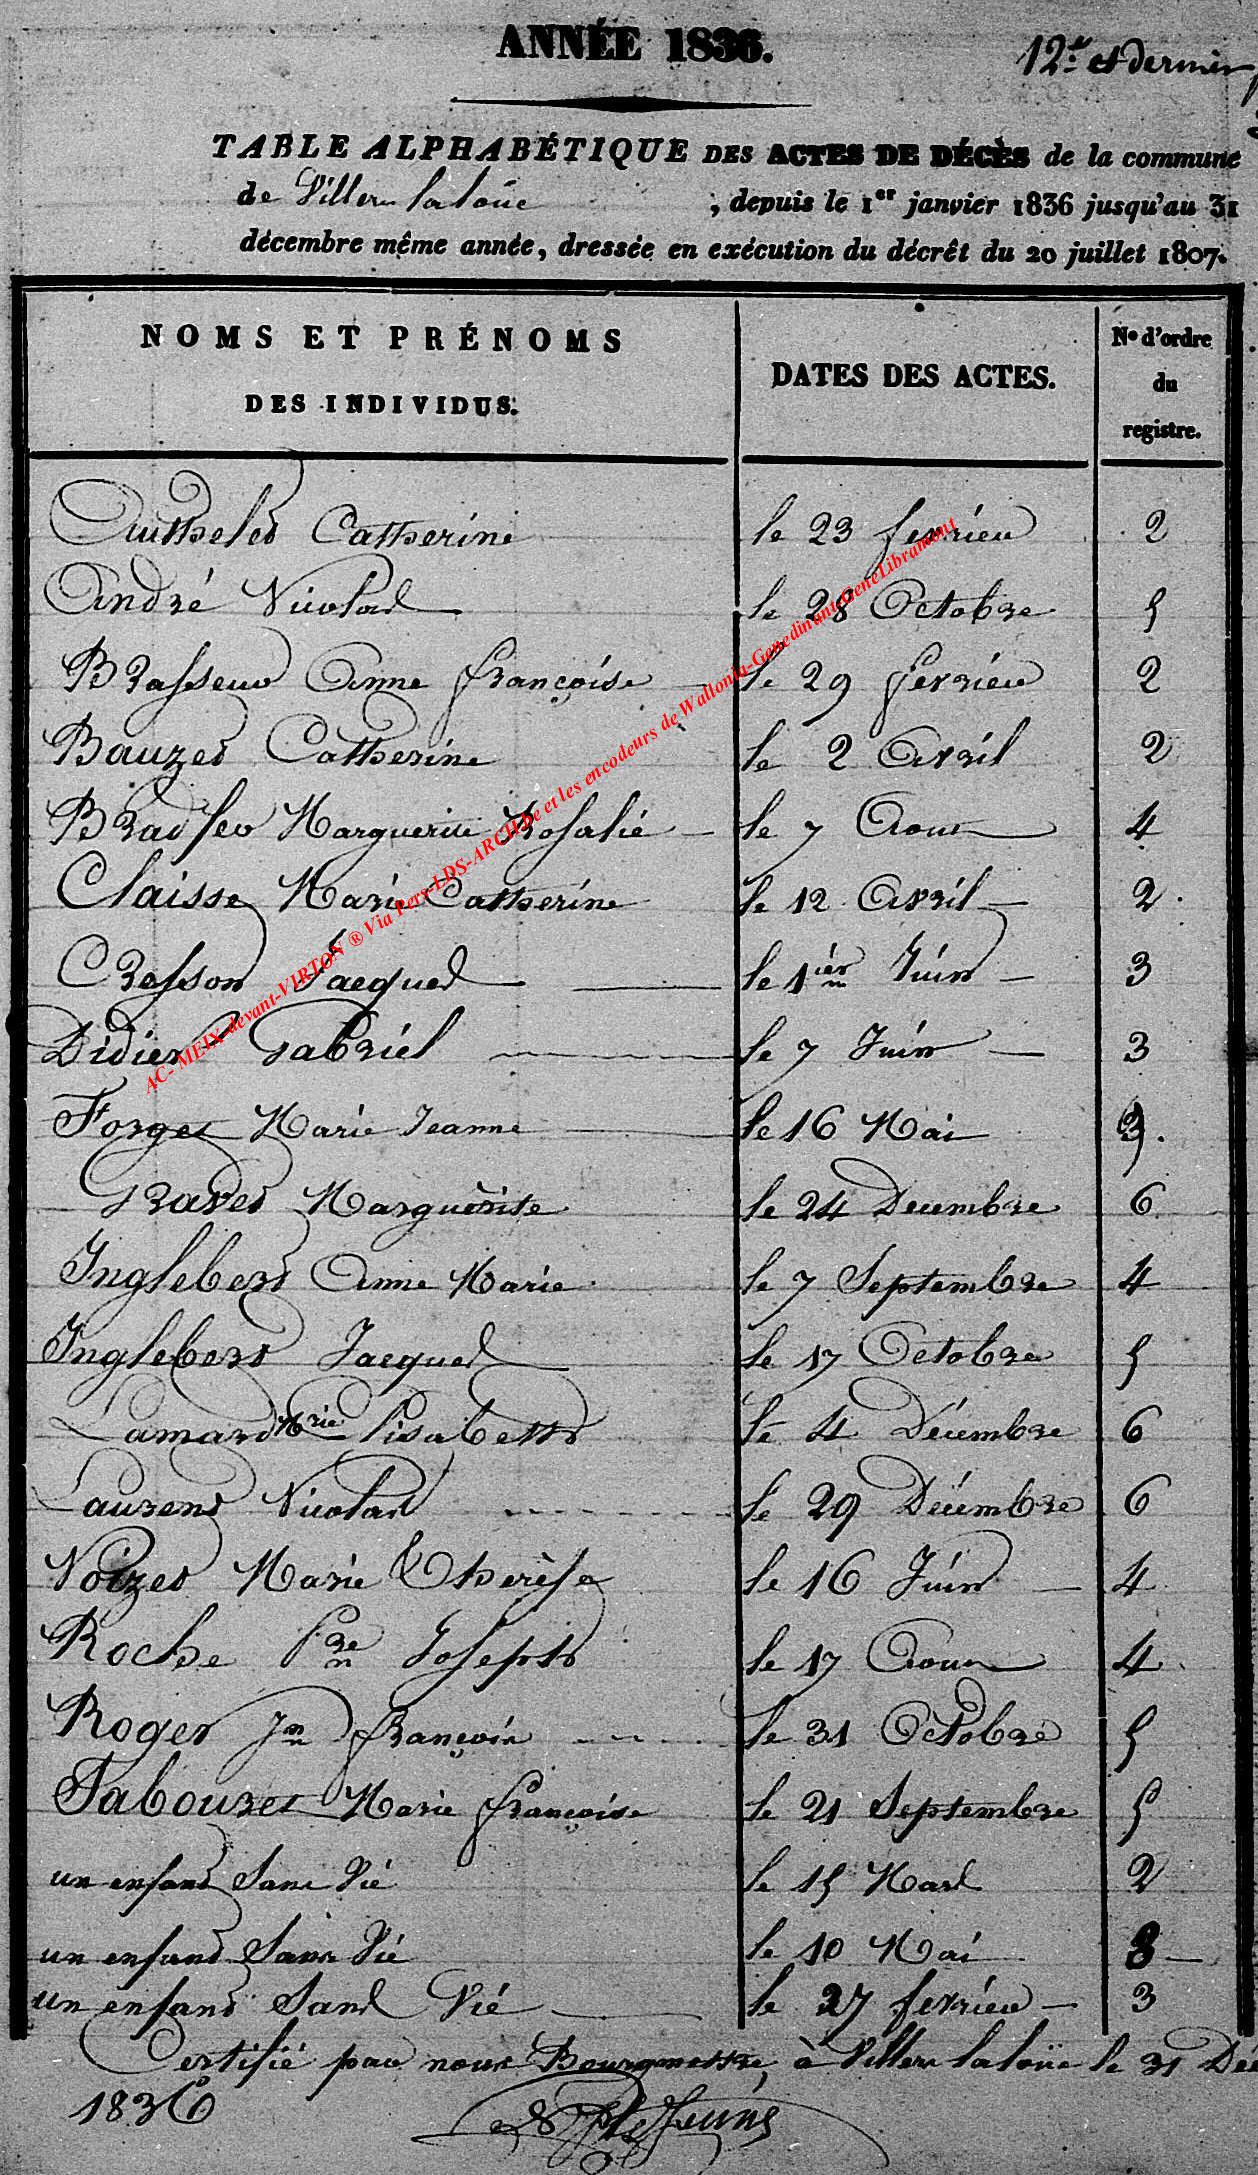 ANNÉE 1836.
12.e et dernier
TABLE ALPHABÉTIQUE DES ACTES DE DÉCÈS de la commune
de Villers la loüe , depuis le 1er janvier 1836 jusqu'au 31
décembre même année, dressée en exécution du décrêt du 20 juillet 1807.
NOMS ET PRÉNOMS DES INDIVIDUS. DATES DES ACTES. No d'ordre du registre.
Authelet Catherine le 23 fevrier 2
André Nicolas le 28 Octobre 5
Brasseur Anne françoise le 29 fevrier 2
Bauzet Catherine le 2 Avril 2
Marguerite Rosalie le 7 Aout 4
Claisse Marie Catherine le 12 Avril 2
Cresson Jacques le 1ier Juin 3
Didier Gabriel le 7 Juin 3
Forget Marie Jeanne le 16 Mai 3
Gravet Marguerite le 24 Decembre 6
Inglebert Anne Marie le 7 Septembre 4
Inglebert Jacques le 17 Octobre 5
Lamard Mrie Lisabeth le 4 Décembre 6
Laurent Nicolas le 29 Décembre 6
Noizet Marie Thérèse le 16 Juin 4
Roche Pre Joseph le 17 Aout 4
Roger Jn françois le 31 Octobre 5
Tabouret Marie françoise le 21 Septembre 5
un enfant Sans Vie le 15 Mars 2
un enfant Sans Vie le 10 Mai 3
un enfant Sans Vié le 27 fevrier 3
Certifié par nous Bourgmestre, à Villers laloüe le 31 Dé
1836
AC-MEIX-devant-VIRTON ® Via Pers-LDS-ARCH.be et les encodeurs de Wallonia-Genedinant-GeneLibramont